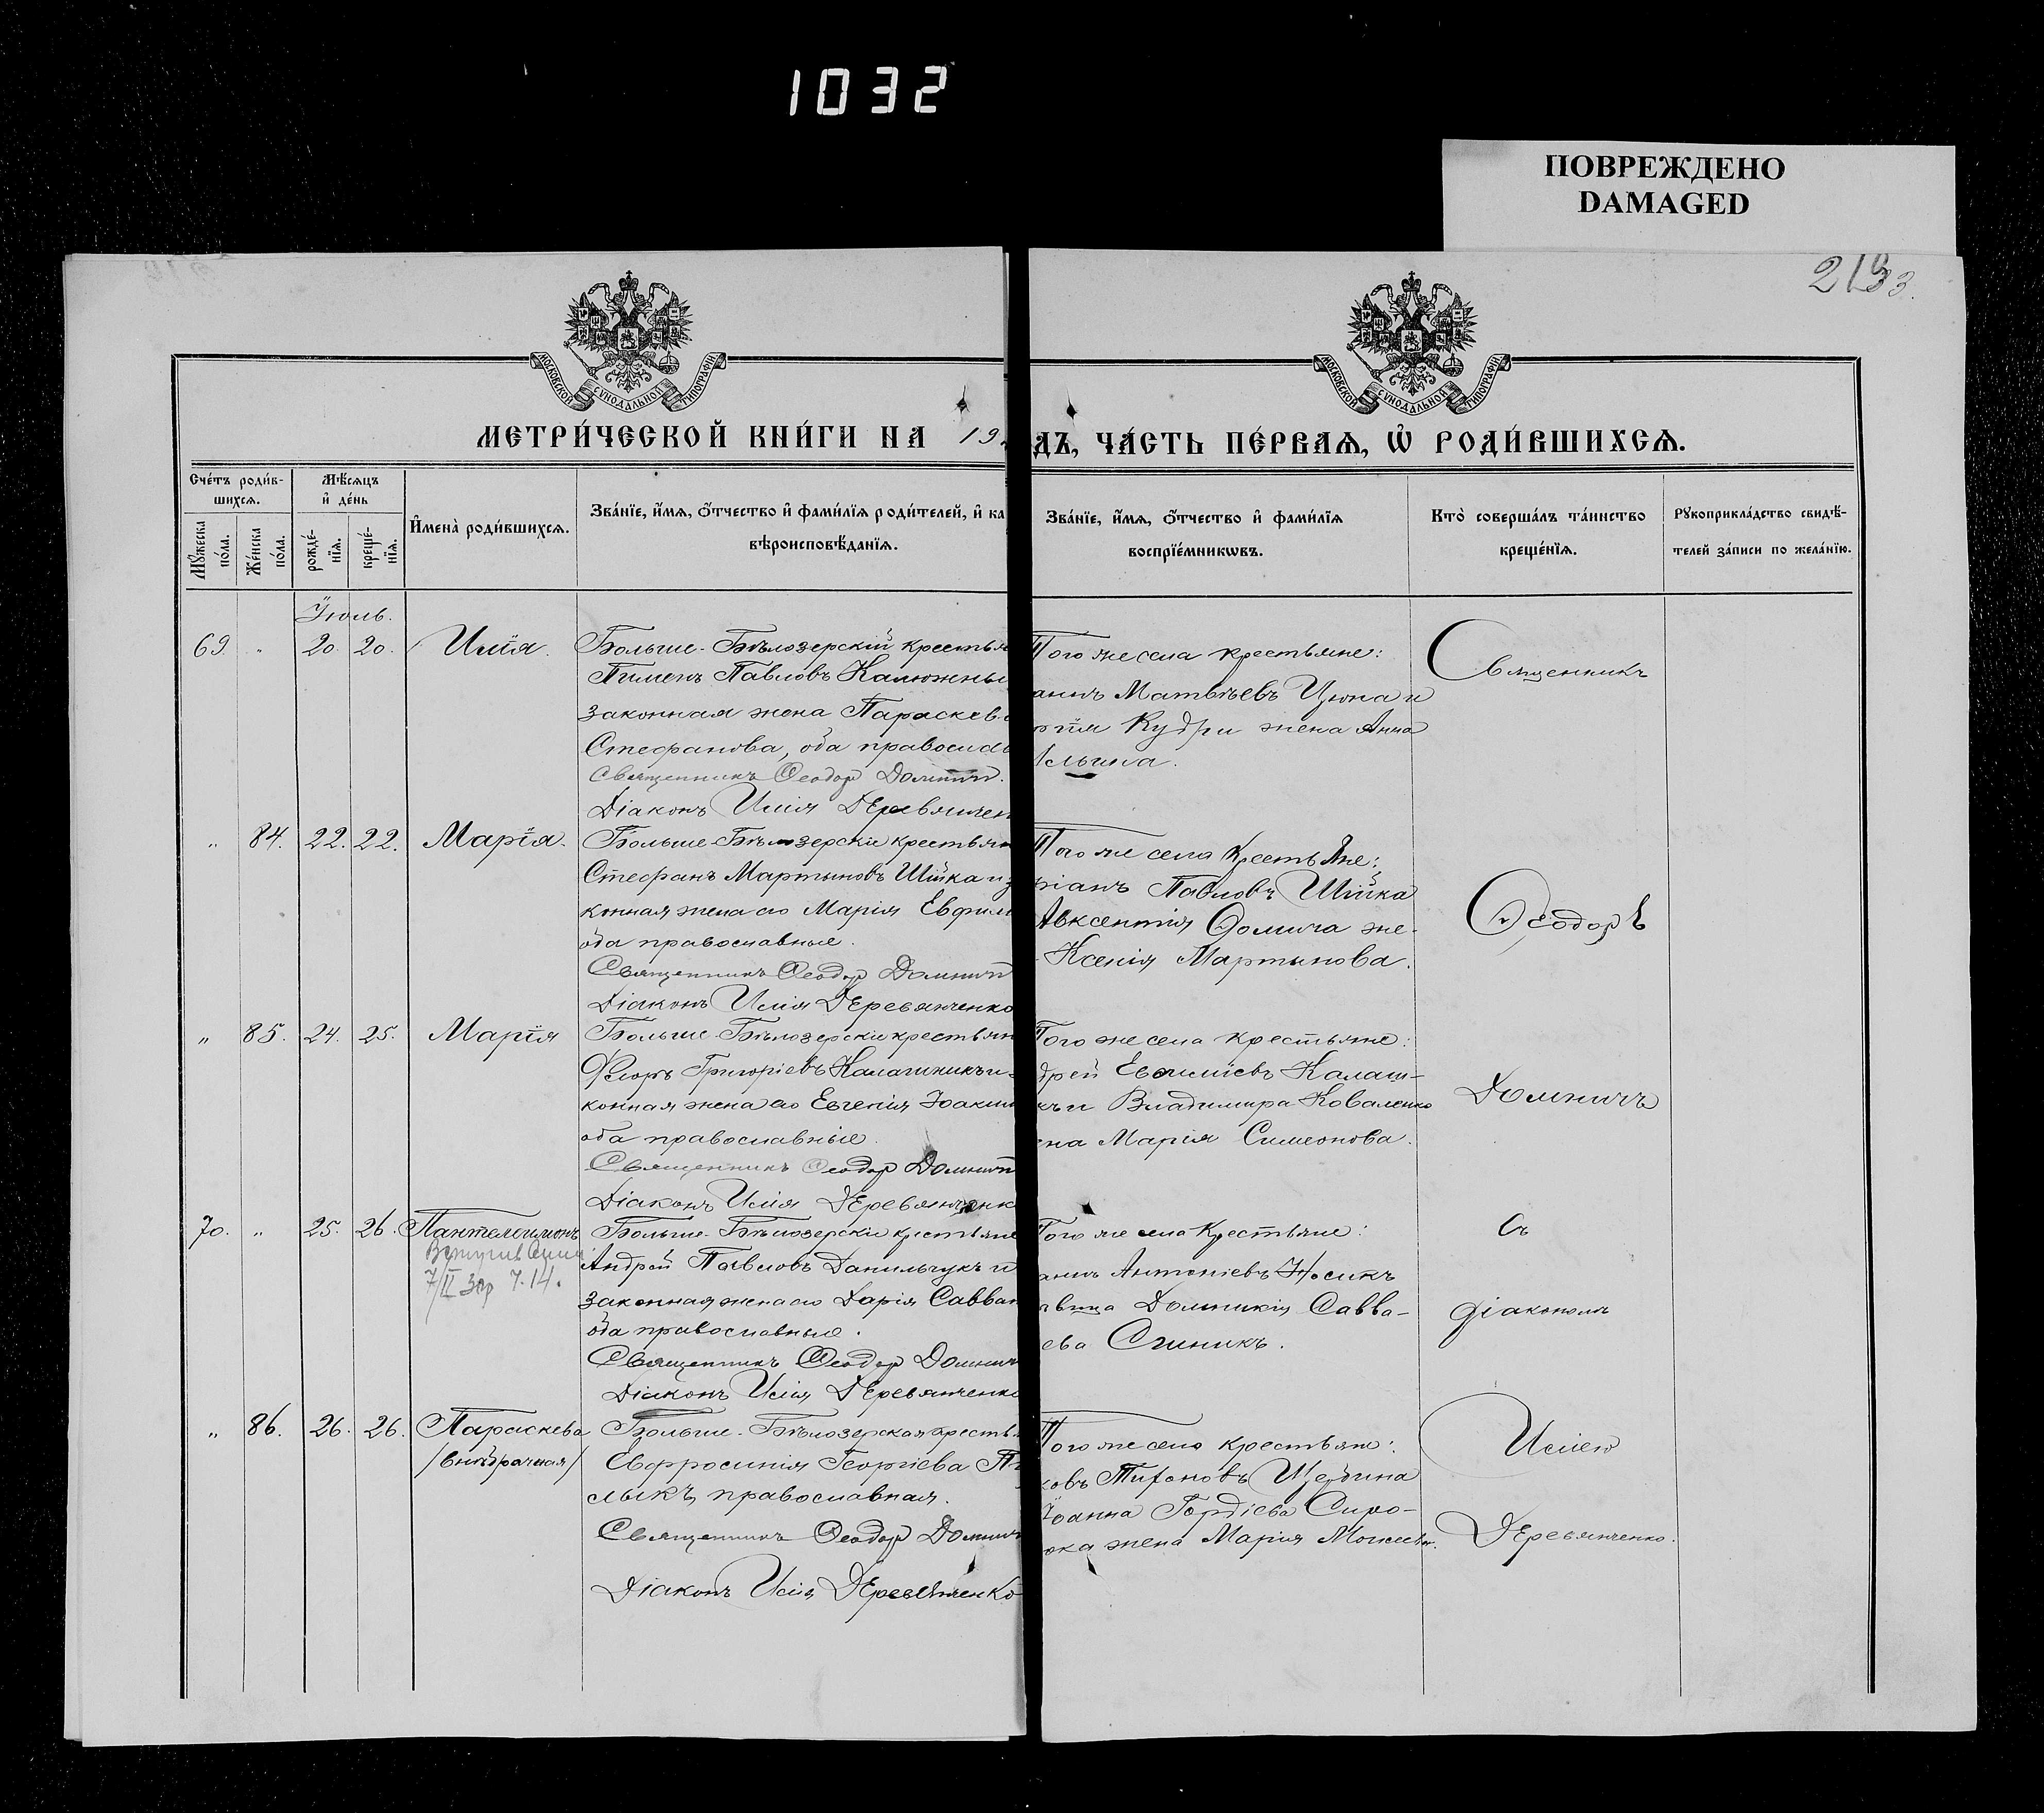 1032
ПОВРЕЖДЕНО
DAMAGED
2193
МОСКОВСКОЙ СУНОДАЛЬНОЙ ТИПОГРАФІИ
МОСКОВСКОЙ СУНОДАЛЬНОЙ ТИПОГРАФІИ
МЕТРИ́ЧЕСКОЙ КНИ́ГИ НА 19
ДЪ, ЧА́СТЬ ПЕ́РВАѦ, Ѡ҆ РОДИ́ВШИХСѦ.
Сче́тъ роди́в-
шихсѧ.
Мѣ́сѧцъ
и҆ де́нь
Мꙋ́жеска по́ла.
Же́нска по́ла.
рожде́-
нїѧ.
креще́-
нїѧ.
И҆мена̀ роди́вшихсѧ.
Зва́нїе, и҆́мѧ, ѻ҆́тчество и҆ фами́лїѧ роди́телей, и҆ ка
вѣроисповѣ́данїѧ.
Зва́нїе, и҆́мѧ, ѻ҆́тчество и҆ фами́лїѧ
воспрїе́мникѡвъ.
Кто̀ соверша́лъ та́инство
креще́нїѧ.
Рꙋкоприкла́дство свидѣ́-
телей за́писи по жела́нїю.
Іюль.
69 " 20. 20. Илія.
Больше-Бѣлозерскій крестья
Пименъ Павловъ Калюжны
законная жена Параскев
Стефанова, оба правосла
Священникъ Ѳеодор Домнич
Діаконъ Илія Деревянчен
Того же села крестьяне:
аннъ Матвѣевъ Цюпа и
ргія Кудри жена Анна
Священникъ
" 84. 22. 22. Марія.
Больше-Бѣлозерскіе крестьян
Стефанъ Мартыновъ Шійка и з
конная жена его Марія Евфим
оба православные.
Священникъ Ѳеодор Домнич
Діаконъ Илія Деревянченко
Того же села крестьяне:
ріанъ Павловъ Шійка
Авксентія Ѳомича же-
Ксенія Мартынова.
Ѳеодоръ
" 85. 24. 25. Марія
Больше-Бѣлозерскіе крестьян
Флоръ Григоріевъ Калашникъ и
конная жена его Евгенія Іоаким
оба православные.
Священникъ Ѳеодор Домнич
Діаконъ Илія Деревянченк
Того же села крестьяне:
дрей Евѳиміевъ Калаш-
къ и Владимира Коваленко
на Марія Симеонова.
Домничъ
70. " 25. 26. Пантелеимонъ
7/II 7.14.
Больше-Бѣлозерскіе крестьяне
Андрей Павловъ Данильчукъ и
законная жена его Дарія Савван
оба православные.
Священникъ Ѳеодор Домнич
Діаконъ Илія Деревянченко
Того же села крестьяне:
аннъ Антоніевъ Носикъ
вица Домникія Савва-
ева Сгиникъ.
Съ
діакономъ
" 86. 26. 26. Параскева
/внѣбрачная/
Больше-Бѣлозерская кресть
Евфросинія Георгіева П
лыкъ, православная.
Священникъ Ѳеодор Домнич
Діаконъ Илія Деревянченко
Того же села крестьяне:
ковъ Тихоновъ Щербина
Іоанна Гордіева Сиро-
ока жена Марія Моисеев.
Иліею
Деревянченко.